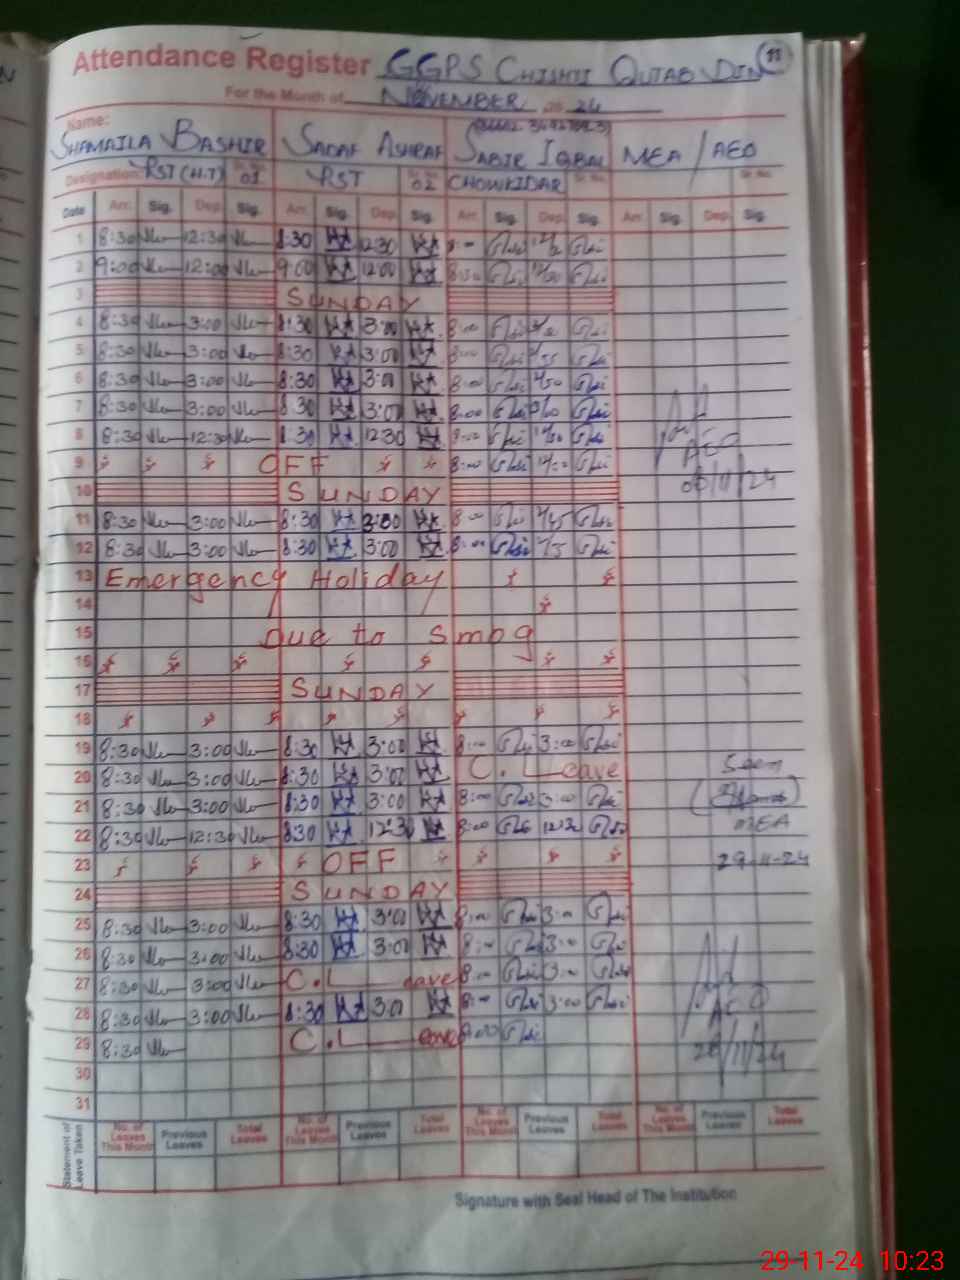 Attendance Register GGPS CHISHTI QUTAB DIN 11
For the Month of NOVEMBER 2024
Name:
SHAMAILA BASHIR SADAF ASHRAF SABIR IQBAL MEA / AEO
Designation: PST (H.T) Sr. No. 01 PST Sr. No. 02 CHOWKIDAR Sr. No. Sr. No.
Date Arr. Sig. Dep. Sig. Arr. Sig. Dep. Sig. Arr. Sig. Dep. Sig. Arr. Sig. Dep. Sig.
1 8:30 12:30 8:30 12:30 8:00
2 9:00 12:00 9:00 12:00 8:30
3 SUNDAY
4 8:30 3:00 8:30 3:00 8:00
5 8:30 3:00 8:30 3:00 8:00
6 8:30 3:00 8:30 3:00 8:00
7 8:30 3:00 8:30 3:00 8:00
8 8:30 12:30 8:30 12:30 8:00 AEO
9 OFF 8:00
10 SUNDAY
11 8:30 3:00 8:30 3:00 8:00
12 8:30 3:00 8:30 3:00 8:00
13 Emergency Holiday
14
15 due to smog
16
17 SUNDAY
18
19 8:30 3:00 8:30 3:00 8:00 3:00
20 8:30 3:00 8:30 3:00 C. Leave Seen
21 8:30 3:00 8:30 3:00 8:00 3:00
22 8:30 12:30 8:30 12:30 8:00 12:30 MEA
23 OFF 29-11-24
24 SUNDAY
25 8:30 3:00 8:30 3:00 8:00 3:00
26 8:30 3:00 8:30 3:00 8:00 3:00
27 8:30 3:00 C. Leave 8:00 3:00
28 8:30 3:00 8:30 3:00 8:00 3:00 AEO
29 8:30 C. Leave 8:00
30
31
Statement of Leave Taken
No. of Leaves This Month Previous Leaves Total Leaves No. of Leaves This Month Previous Leaves Total Leaves No. of Leaves This Month Previous Leaves Total Leaves No. of Leaves This Month Previous Leaves Total Leaves
Signature with Seal Head of The Institution
29-11-24 10:23